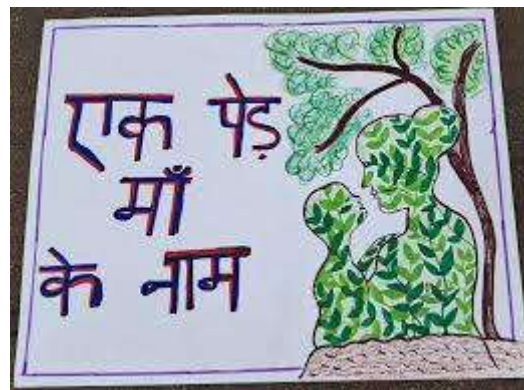 एक पेड़
माँ
के नाम